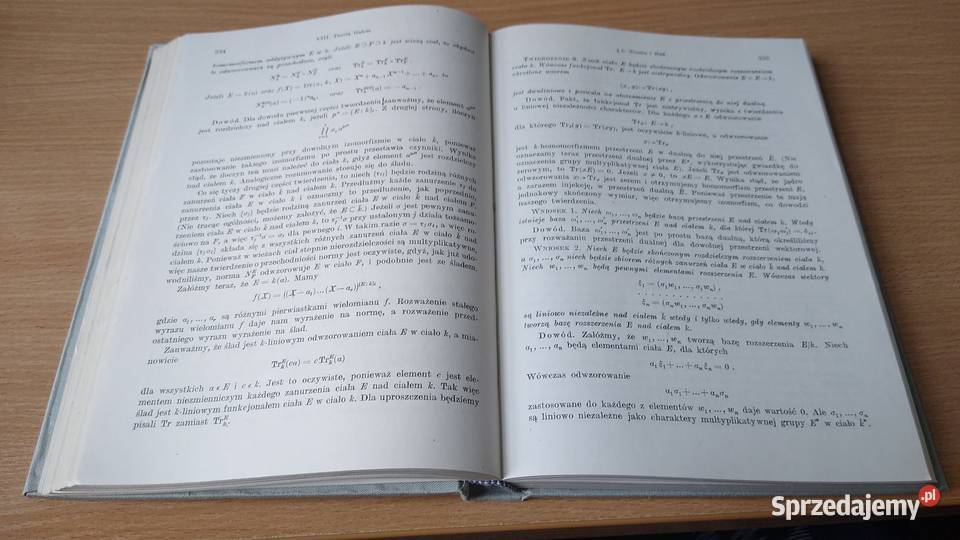 234
VIII. Teoria Galois
homomorfizmem addytywnym E w k. Jeżeli E ⊃ F ⊃ k jest wieżą ciał, to
te odwzorowania są przechodnie, czyli
N_k^E = N_k^F ∘ N_F^E oraz Tr_k^E = Tr_k^F ∘ Tr_F^E.
Jeżeli E = k(α) oraz f(X) = Irr(α, k, X) = X^n + a_{n-1}X^{n-1} + ... + a_0, to
N_k^{k(α)}(α) = (-1)^n a_0, oraz Tr_k^{k(α)}(α) = -a_{n-1}.
Dowód. Dla dowodu pierwszej części twierdzenia zauważmy, że element α^{p^μ}
jest rozdzielczy nad ciałem k, jeżeli p^μ = [E:k]_i. Z drugiej strony, iloczyn
pozostaje niezmienny przy dowolnym izomorfizmie w ciało k, ponieważ
zastosowanie takiego izomorfizmu po prostu przestawia czynniki. Wynika
stąd, że iloczyn ten musi należeć do ciała k, gdyż element α^{p^μ} jest rozdzielczy
nad ciałem k. Analogiczne rozumowanie stosuje się do śladu.
Co się tyczy drugiej części twierdzenia, to niech {τ_j} będzie rodziną różnych
zanurzeń ciała F w ciało k nad ciałem k. Przedłużmy każde zanurzenie τ_j do
zanurzenia ciała E w ciało k i oznaczmy to przedłużenie, jak poprzednio,
przez τ_j. Niech {σ_i} będzie rodziną zanurzeń ciała E w ciało k nad ciałem F.
(Nie tracąc ogólności, możemy założyć, że E ⊂ k.) Jeżeli σ jest pewnym zanurzeniem
ciała E w ciało k nad ciałem k, to τ_j^{-1}σ przy ustalonym j działa tożsamościowo
na F, a więc τ_j^{-1}σ = σ_i dla pewnego i. W takim razie σ = τ_jσ_i, a więc rodzina
{τ_jσ_i} składa się z wszystkich różnych zanurzeń ciała E w ciało k nad
ciałem k. Ponieważ w wieżach ciał stopnie nierozdzielczości są multyplikatywne,
więc nasze twierdzenie o przechodniości normy jest oczywiste, gdyż, jak już udowodniliśmy,
norma N_F^E odwzorowuje E w ciało F, i podobnie jest ze śladem.
Załóżmy teraz, że E = k(α). Mamy
f(X) = ((X-α_1)...(X-α_r))^{[E:k]_i},
gdzie α_1, ..., α_r są różnymi pierwiastkami wielomianu f. Rozważenie stałego
wyrazu wielomianu f daje nam wyrażenie na normę, a rozważenie przedostatniego
wyrazu wyrażenie na ślad.
Zauważmy, że ślad jest k-liniowym odwzorowaniem ciała E w ciało k, a mianowicie
Tr_k^E(cα) = c Tr_k^E(α)
dla wszystkich α ∈ E i c ∈ k. Jest to oczywiste, ponieważ element c jest elementem
niezmienniczym każdego zanurzenia ciała E nad ciałem k. Tak więc
ślad jest k-liniowym funkcjonałem ciała E w ciało k. Dla uproszczenia będziemy
pisali Tr zamiast Tr_k^E.
§ 5. Norma i ślad
235
TWIERDZENIE 9. Niech ciało E będzie skończonym rozdzielczym rozszerzeniem
ciała k. Wówczas funkcjonał Tr: E→k jest nietrywialny. Odwzorowanie E×E→k,
określone wzorem
(x, y) → Tr(xy),
jest dwuliniowe i pozwala na utożsamienie E z przestrzenią do niej dualną.
Dowód. Fakt, że funkcjonał Tr jest nietrywialny, wynika z twierdzenia
o liniowej niezależności charakterów. Dla każdego x ∈ E odwzorowanie
Tr_x: E→k,
dla którego Tr_x(y) = Tr(xy), jest oczywiście k-liniowe, a odwzorowanie
x → Tr_x
jest k-homomorfizmem przestrzeni E w dualną do niej przestrzeń E. (Nie
oznaczamy teraz przestrzeni dualnej przez E*, wykorzystując gwiazdkę do
oznaczenia grupy multyplikatywnej ciała E). Jeżeli Tr_x jest odwzorowaniem
zerowym, to Tr(xE) = 0. Jeżeli x ≠ 0, to xE = E. Wynika stąd, że jądro
odwzorowania x → Tr_x jest zerem i otrzymujemy homomorfizm przestrzeni E,
a zarazem injekcję, w przestrzeń dualną E. Ponieważ przestrzenie te mają
jednakowy skończony wymiar, więc otrzymujemy izomorfizm, co dowodzi
naszego twierdzenia.
WNIOSEK 1. Niech ω_1, ..., ω_n będzie bazą przestrzeni E nad ciałem k. Wtedy
istnieje baza ω'_1, ..., ω'_n przestrzeni E nad ciałem k, dla której Tr(ω_iω'_j) = δ_ij.
Dowód. Baza ω'_1, ..., ω'_n jest po prostu bazą dualną, którą określiliśmy
przy rozważaniu przestrzeni dualnej dla dowolnej przestrzeni wektorowej.
WNIOSEK 2. Niech E będzie skończonym rozdzielczym rozszerzeniem ciała k,
a σ_1, ..., σ_n niech będzie zbiorem różnych zanurzeń ciała E w ciało k nad ciałem k.
Niech w_1, ..., w_n będą pewnymi elementami rozszerzenia E. Wówczas wektory
ξ_1 = (σ_1w_1, ..., σ_1w_n),
. . . . . . . . . .
ξ_n = (σ_nw_1, ..., σ_nw_n)
są liniowo niezależne nad ciałem k wtedy i tylko wtedy, gdy elementy w_1, ..., w_n
tworzą bazę rozszerzenia E nad ciałem k.
Dowód. Załóżmy, że w_1, ..., w_n tworzą bazę rozszerzenia E/k. Niech
α_1, ..., α_n będą elementami ciała E, dla których
α_1ξ_1 + ... + α_nξ_n = 0.
Wówczas odwzorowanie
α_1σ_1 + ... + α_nσ_n
zastosowane do każdego z elementów w_1, ..., w_n daje wartość 0. Ale σ_1, ..., σ_n
są liniowo niezależne jako charaktery multyplikatywnej grupy E* w ciało k*.
Sprzedajemy.pl